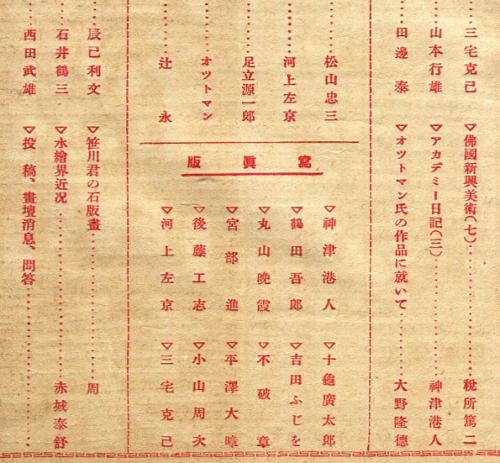 三宅克己
山本行雄
田邊泰
▽佛國新興美術(七)⋯⋯税所篤二
▽アカデミー日記(三)⋯⋯神津港人
▽オツトマン氏の作品に就いて⋯⋯大野隆德
松山忠三
河上左京
足立源一郎
オツトマン
辻永
寫眞版
▽神津港人
▽鶴田吾郎
▽丸山晩霞
▽宮部進
▽後藤工志
▽河上左京
▽十龜廣太郎
▽吉田ふじを
▽不破章
▽平澤大暲
▽小山周次
▽三宅克己
辰巳利文
石井鶴三
西田武雄
▽笹川君の石版畫⋯⋯周
▽水繪界近况⋯⋯赤城泰舒
▽投稿、畫壇消息、問答⋯⋯